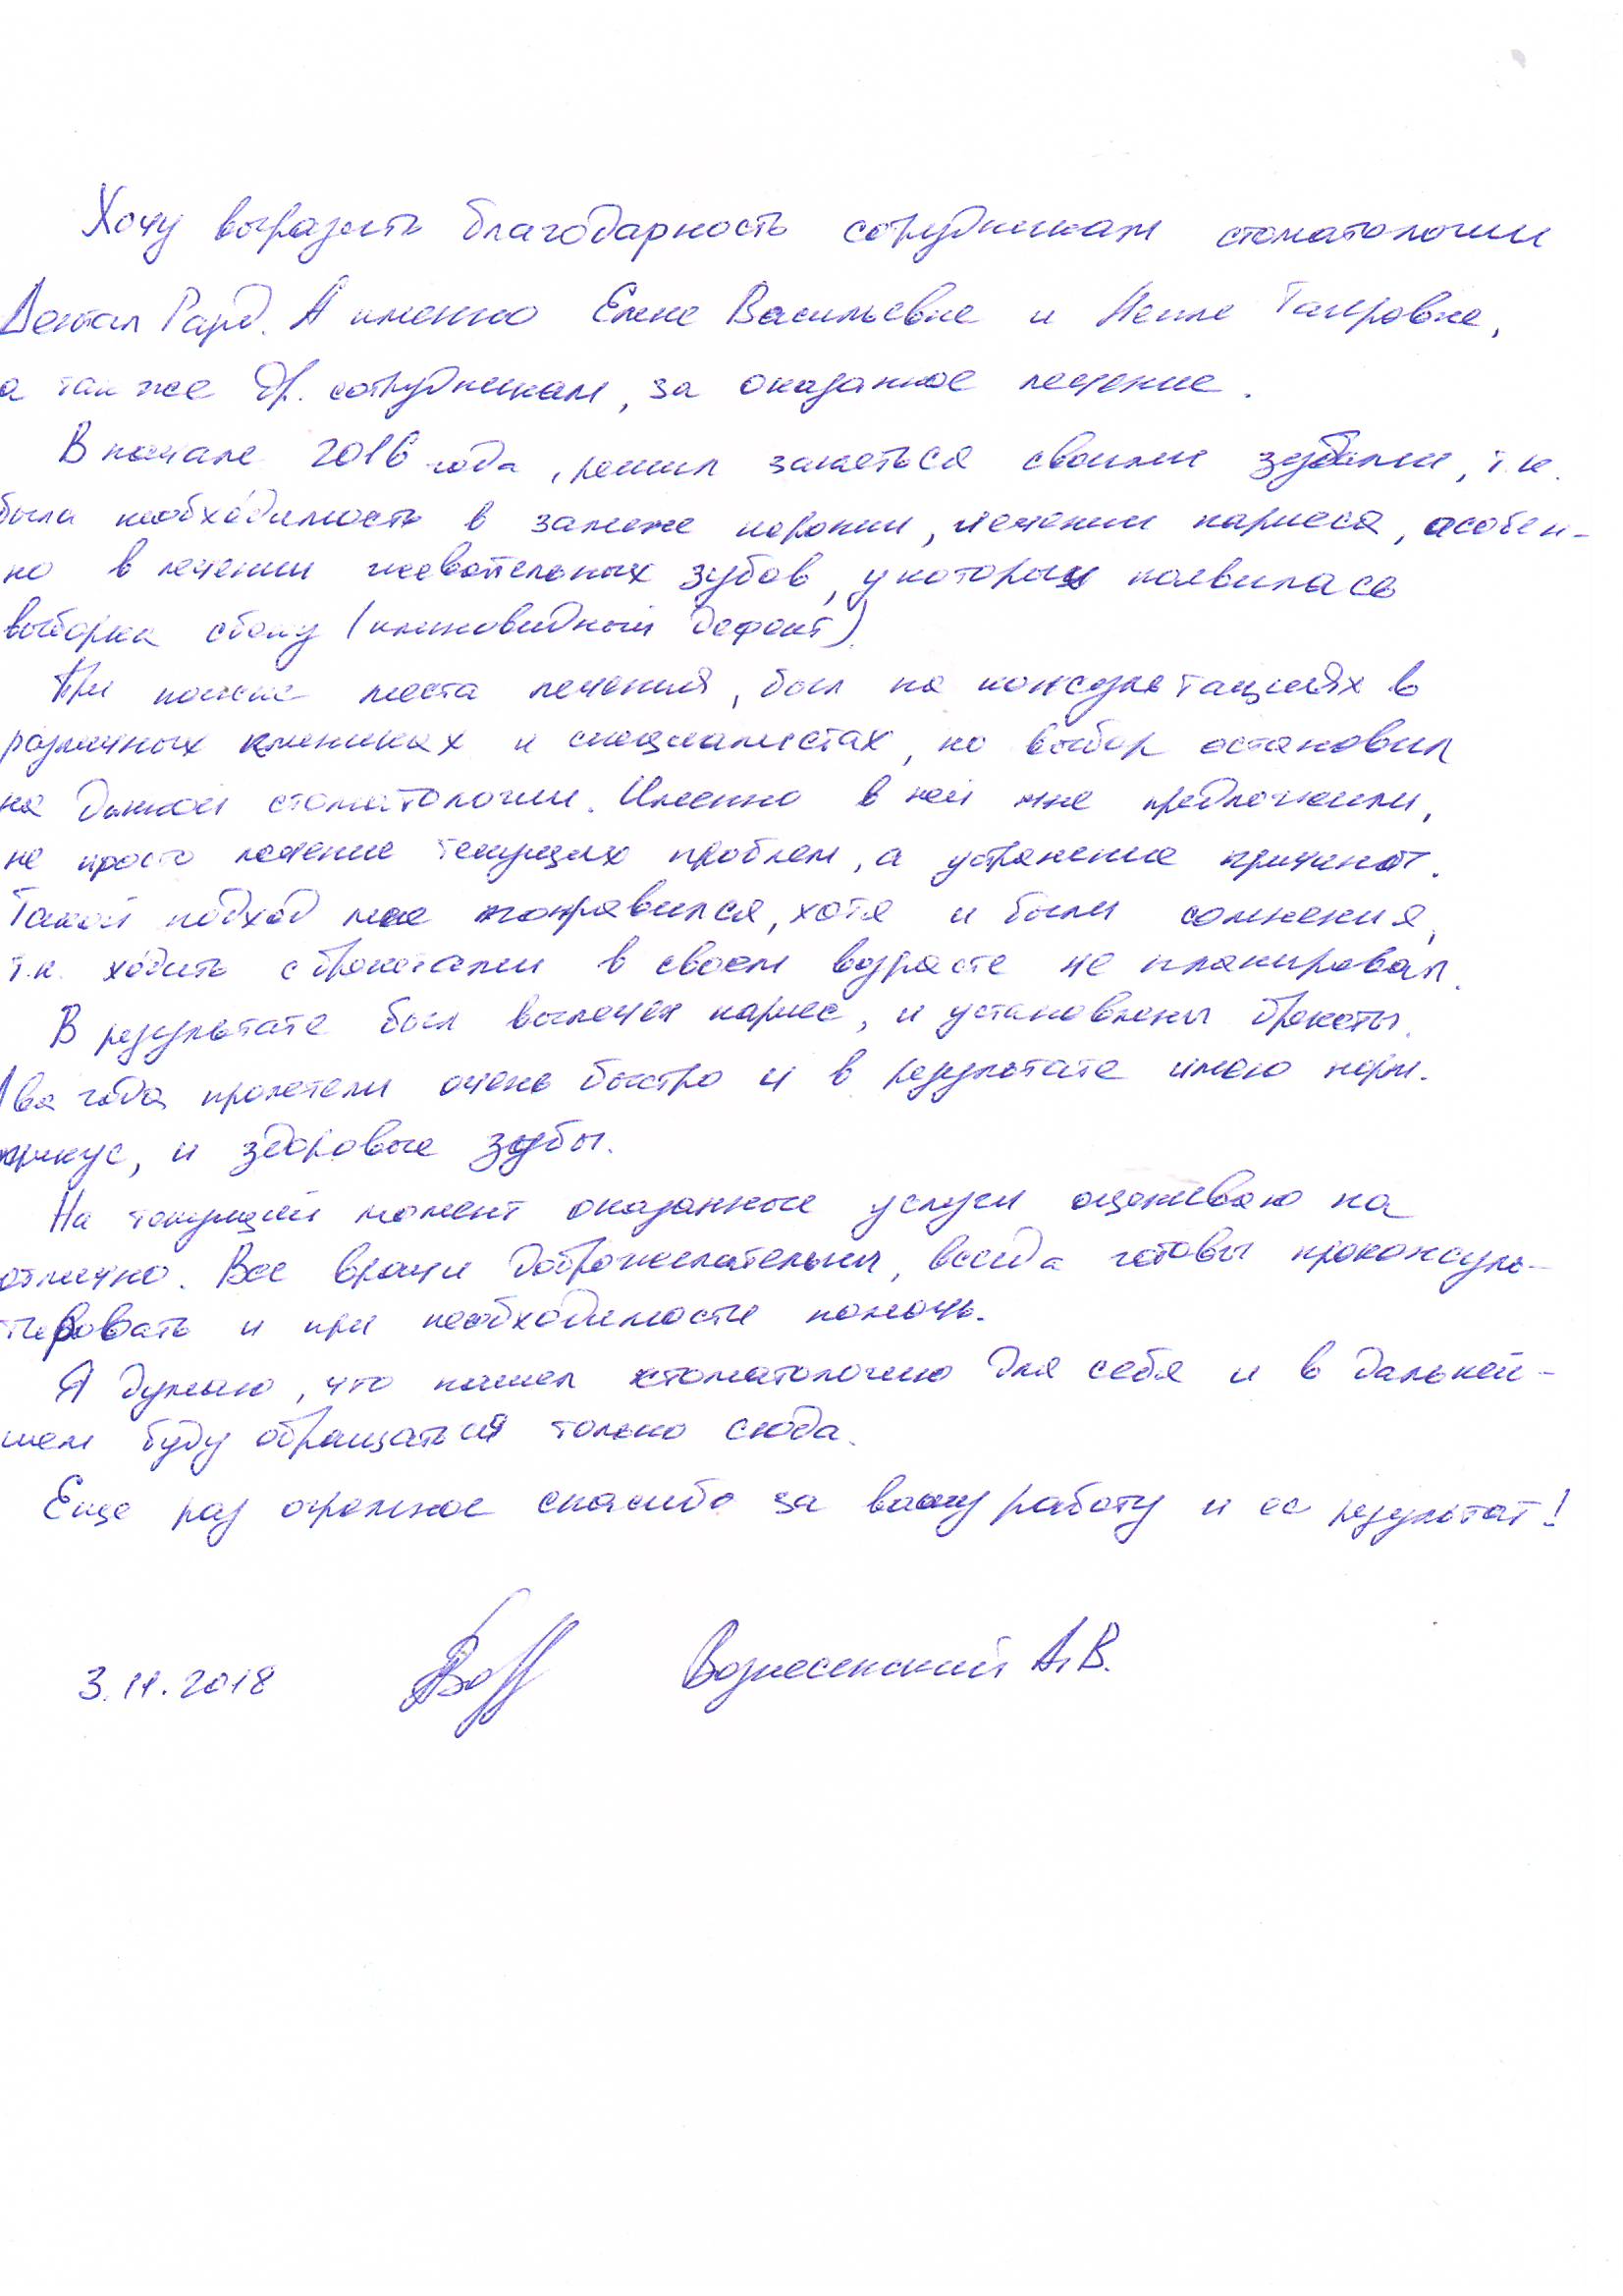 Хочу выразить благодарность сотрудникам стоматологии
Дентал Гард. А именно Елене Васильевне и Наиле Таировне,
а так же др. сотрудникам, за оказанное лечение.
В начале 2016 года, решил заняться своими зубами, т.к.
была необходимость в замене коронки, лечении кариеса, особен-
но в лечении жевательных зубов, у которых появилась
выборка сбоку (клиновидный дефект).
При поиске места лечения, был на консультациях в
различных клиниках и специалистах, но выбор остановил
на данной стоматологии. Именно в ней мне предложили,
не просто лечение текущих проблем, а устранение причины.
Такой подход мне понравился, хотя и были сомнения,
т.к. ходить с брекетами в своем возрасте не планировал.
В результате был вылечен кариес, и установлены брекеты.
Два года пролетели очень быстро и в результате имею норм.
прикус, и здоровые зубы.
На текущий момент оказанные услуги оцениваю на
отлично. Все врачи доброжелательны, всегда готовы проконсуль-
тировать и при необходимости помочь.
Я думаю, что нашел стоматологию для себя и в дальней-
шем буду обращаться только сюда.
Еще раз огромное спасибо за вашу работу и ее результат!
3.11.2018 Вознесенский А.В.